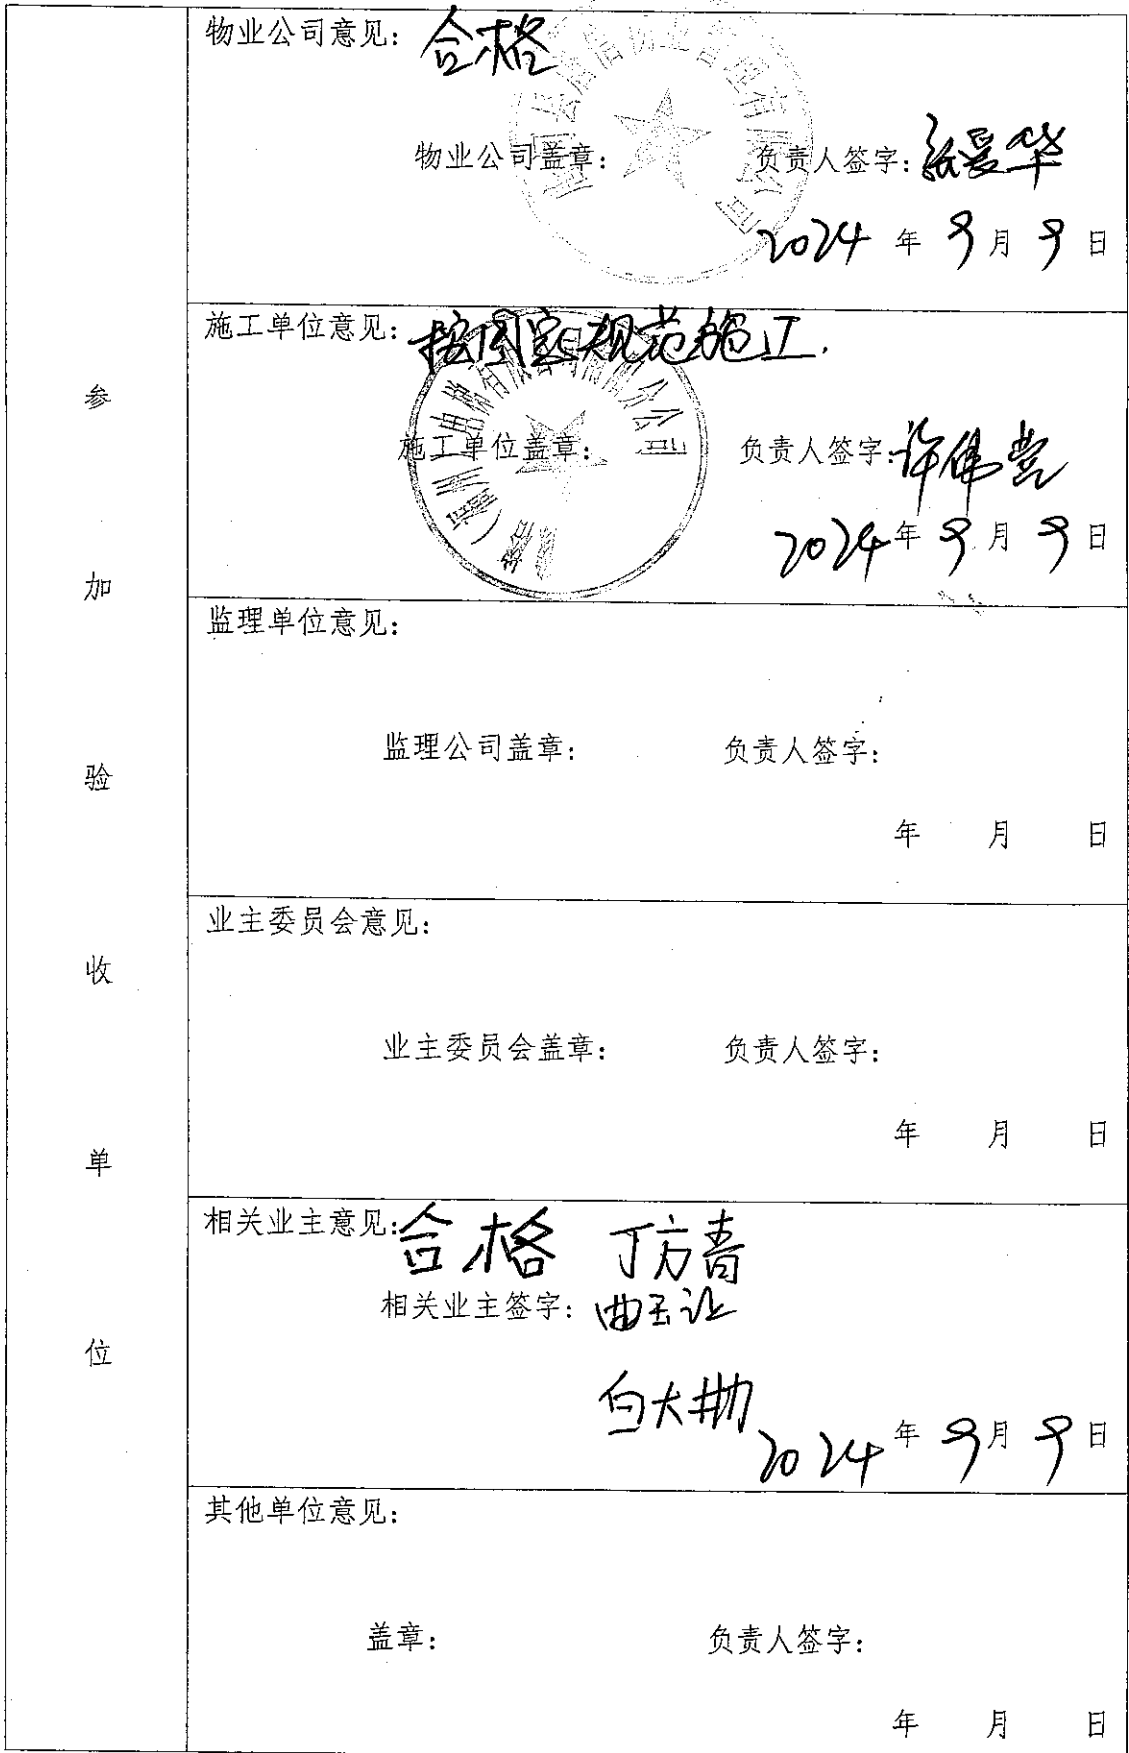 物业公司意见：合格
物业公司盖章：
负责人签字：张爱华
2024 年 9 月 9 日
施工单位意见：按国家规范施工.
施工单位盖章：
负责人签字：许伟
2024 年 9 月 9 日
监理单位意见：
监理公司盖章：
负责人签字：
年 月 日
业主委员会意见：
业主委员会盖章：
负责人签字：
年 月 日
相关业主意见：合格 丁方青
相关业主签字：曲玉让
白大勘
2024 年 9 月 9 日
其他单位意见：
盖章：
负责人签字：
年 月 日
参加验收单位